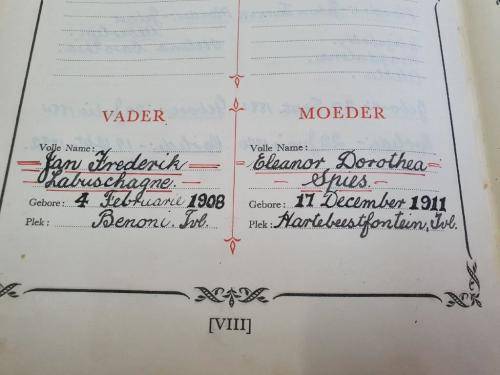 VADER
Volle Name:
Jan Frederik
Labuschagne.
Gebore: 4 Februarie 1908
Plek: Benoni, Tvl.
MOEDER
Volle Name:
Eleanor Dorothea
Spies.
Gebore: 17 December 1911
Plek: Hartebeestfontein, Tvl.
[VIII]